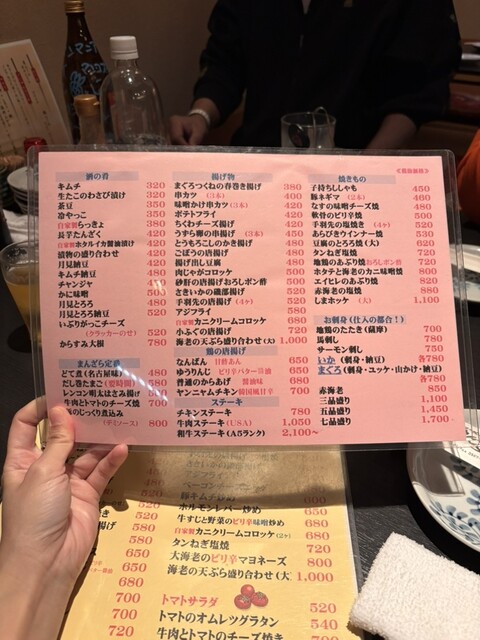 酒の肴
キムチ 320
生たこのわさび漬け 320
茶豆 350
冷やっこ 350
自家製らっきょ 380
長芋たんざく 420
自家製ホタルイカ醤油漬け 420
漬物の盛り合わせ 420
月見納豆 420
キムチ納豆 480
チャンジャ 450
かに味噌 500
月見とろろ 480
月見とろろ納豆 520
いぶりがっこチーズ
(クラッカーのせ) 520
からすみ大根 780
まんざら定番
どて煮(名古屋味)
だし巻たまご
レンコン明太はさみ揚げ
牛肉とトマトのチーズ焼 700
のじっくり煮込み
(デミソース) 800
揚げ物
まぐろつくねの春巻き揚げ 380
串カツ (3本) 400
味噌かけ串カツ(3本) 420
ポテトフライ 420
ちくわチーズ揚げ 420
うずら卵の串揚げ (3本) 450
とうもろこしのかき揚げ 480
ごぼうの唐揚げ 480
揚げ出し豆腐 480
肉じゃがコロッケ 500
砂肝の唐揚げおろしポン酢 500
さきいかの磯部揚げ 520
手羽先の唐揚げ (4ヶ) 520
アジフライ 580
自家製カニクリームコロッケ 680
小ふぐの唐揚げ 720
海老の天ぷら盛り合わせ(大) 1,000
鶏の唐揚げ
なんばん 甘酢あん 650
ゆうりんじ ピリ辛バター醤油 650
普通のからあげ 醤油味 680
ヤンニャムチキン 韓国風甘辛 700
ステーキ
チキンステーキ 780
牛肉ステーキ(USA) 1,050
和牛ステーキ(A5ランク) 2,100〜
《税抜価格》
焼きもの
子持ちししゃも 450
豚ネギマ (2本) 460
なすの味噌チーズ焼 480
軟骨のピリ辛焼 500
手羽先の塩焼き (4ヶ) 520
あらびきウインナー焼 530
豆腐のとろろ焼(大) 620
タンねぎ塩焼 720
地鶏のあぶり焼おろしポン酢 720
ホタテと海老のカニ味噌焼 800
エイヒレのあぶり焼 820
赤海老の塩焼 880
しまホッケ (大) 1,100
お刺身(仕入の都合!)
地鶏のたたき(薩摩) 700
馬刺し 780
サーモン刺し 750
いか (刺身・納豆) 各780
まぐろ(刺身・ユッケ・山かけ・納豆)
各780
赤海老 850
三品盛り 1,100
五品盛り 1,450
七品盛り 1,700
豚キムチ炒め 600
ホルモンレバー炒め 650
牛すじと野菜のピリ辛味噌炒め 680
自家製カニクリームコロッケ(2ヶ) 680
タンねぎ塩焼 720
大海老のピリ辛マヨネーズ 800
海老の天ぷら盛り合わせ(大) 1,000
トマトサラダ 520
トマトのオムレツグラタン 540
牛肉とトマトのチーズ焼き 700